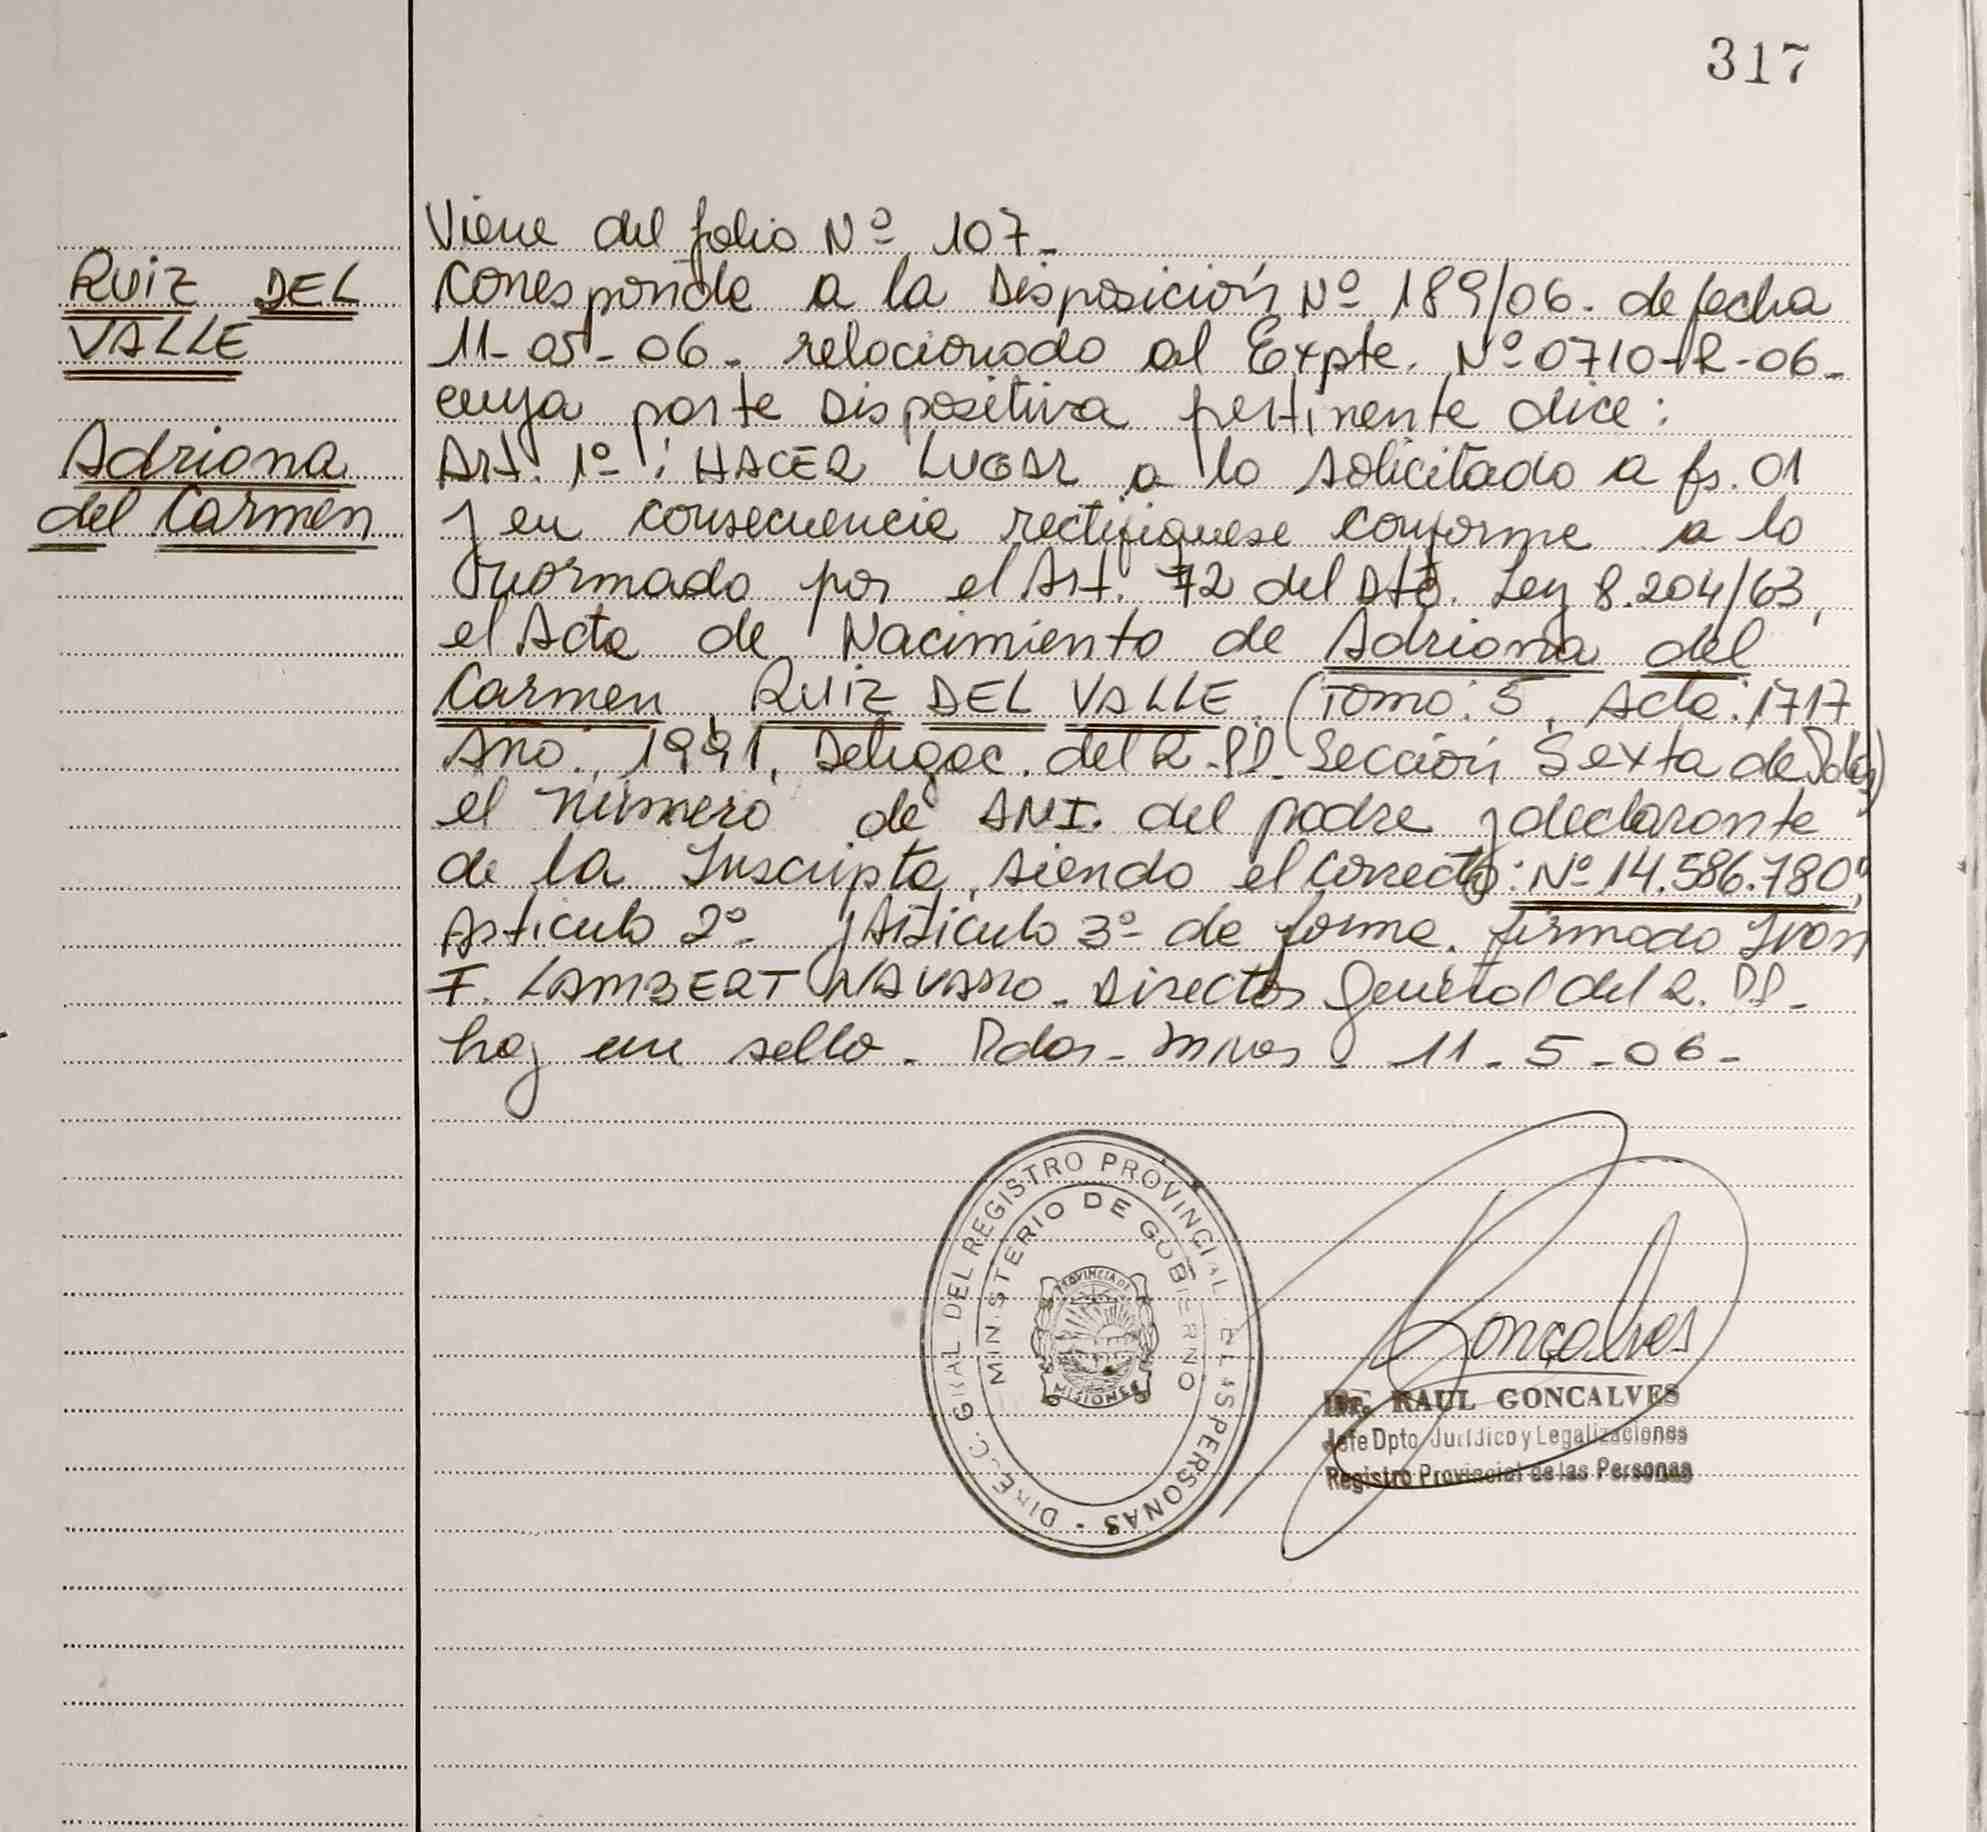 317
RUIZ DEL
VALLE
Adriana
del Carmen
Viene del folio Nº 107-
Corresponde a la Disposición Nº 189/06. de fecha
11-05-06- relacionado al Expte. Nº 0710-R-06-
cuya parte Dispositiva pertinente dice:
Art. 1º: HACER LUGAR a lo solicitado a fs. 01
y en consecuencia rectifiquese conforme a lo
normado por el Art. 72 del Dto. Ley 8.204/63,
el Acta de Nacimiento de Adriana del
Carmen RUIZ DEL VALLE (Tomo: 5, Acta: 1717
Año: 1991, Delegac. del R.PP. Sección Sexta de Pdas)
el número de DNI. del padre y declarante
de la Inscripta, siendo el correcto: Nº 14.586.780"
Articulo 2º- y Articulo 3º- de forma. firmado Ivan
F. LAMBERT NAVARRO- Director General del R. PP-
hay un sello- Pdas- Mnes- 11-5-06-
DIREC. GRAL DEL REGISTRO PROVINCIAL DE LAS PERSONAS -
MINISTERIO DE GOBIERNO
PROVINCIA DE
MISIONES
Goncalves
Dr. RAUL GONCALVES
Jefe Dpto. Jurídico y Legalizaciones
Registro Provincial de las Personas